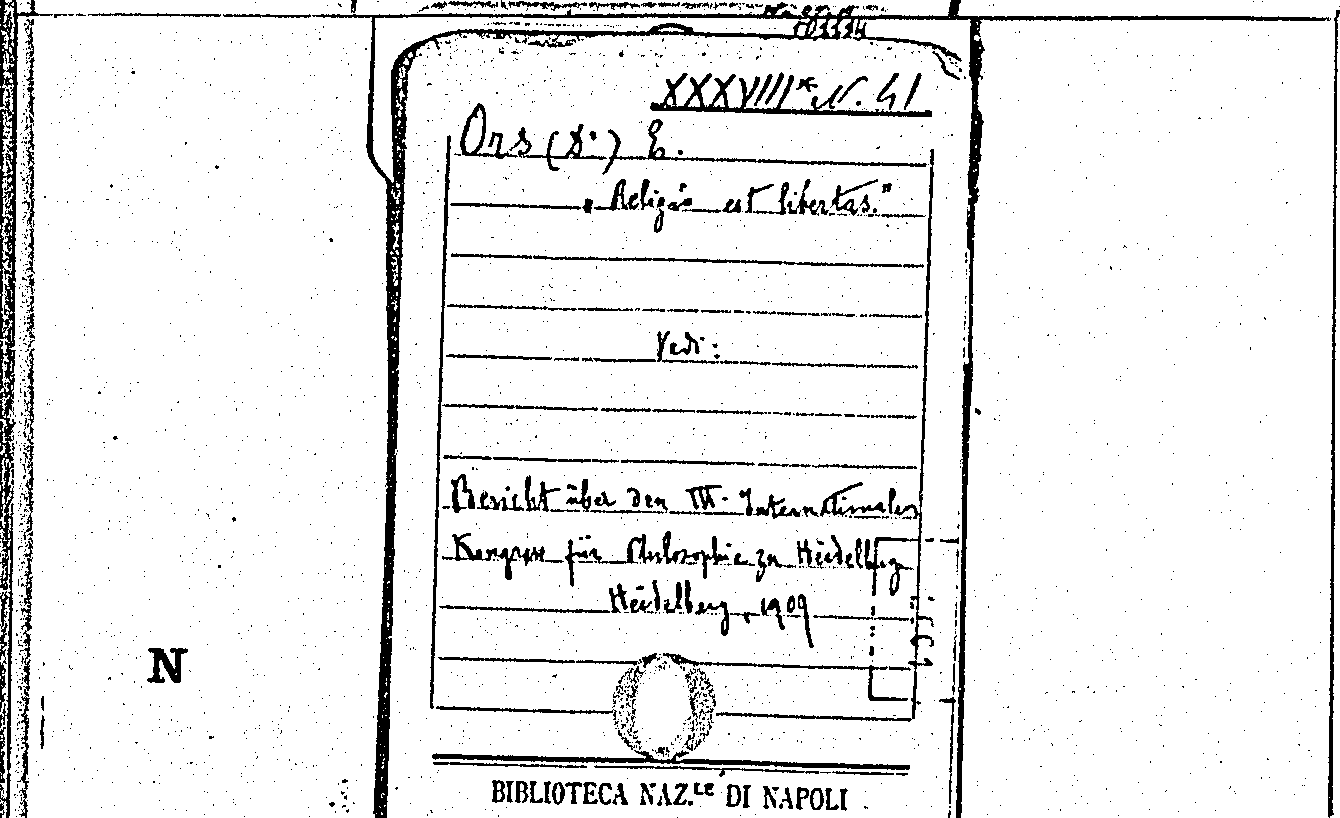 XXXVIII* N. 41
Ors (d') E.
"Religio est libertas."
Vedi:
Bericht über den III. Internationalen
Kongress für Philosophie zu Heidelberg
Heidelberg, 1909
N
BIBLIOTECA NAZ.LE DI NAPOLI